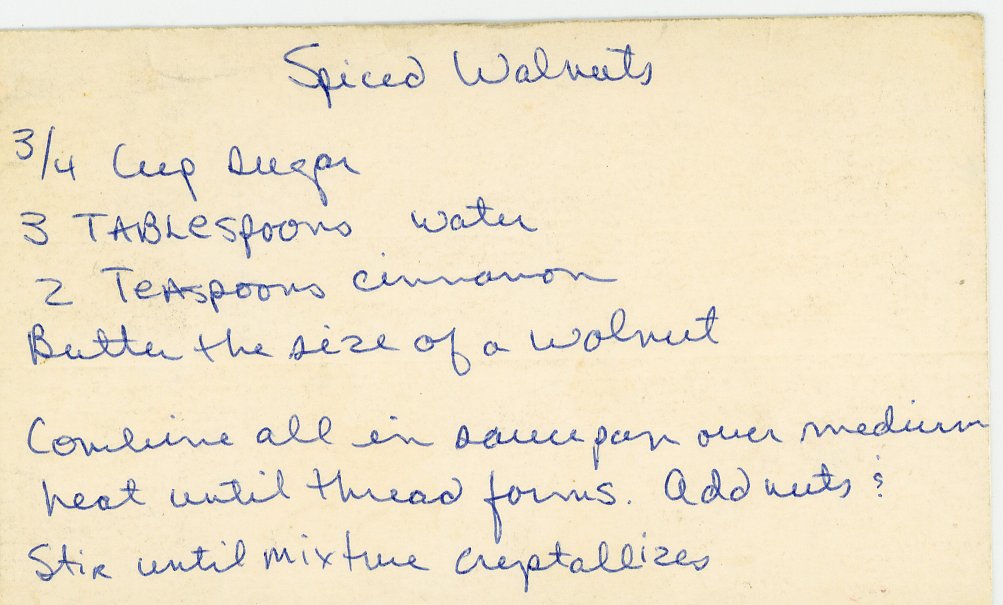 Spiced Walnuts
3/4 Cup sugar
3 TABLespoons water
2 TeAspoons cinnamon
Butter the size of a walnut
Combine all in saucepan over medium
heat until thread forms. Add nuts &
Stir until mixture crystallizes